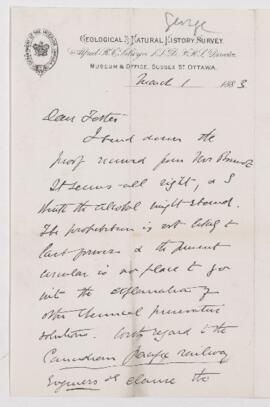 George
GEOLOGICAL & NATURAL HISTORY SURVEY.
Alfred R. C. Selwyn L.L.D. F.R.S. Director.
MUSEUM & OFFICE, SUSSEX ST. OTTAWA.
March 1 1883
Dear
I send down the
proof received from Mr
It seems all right, & I
think the alcohol might stand.
The prohibition is not likely to
last forever & the present
circular is no place to go
into the explanation of
other chemical preservative
solutions. With regard to the
Canadian Pacific railway
Engineers &c clause the